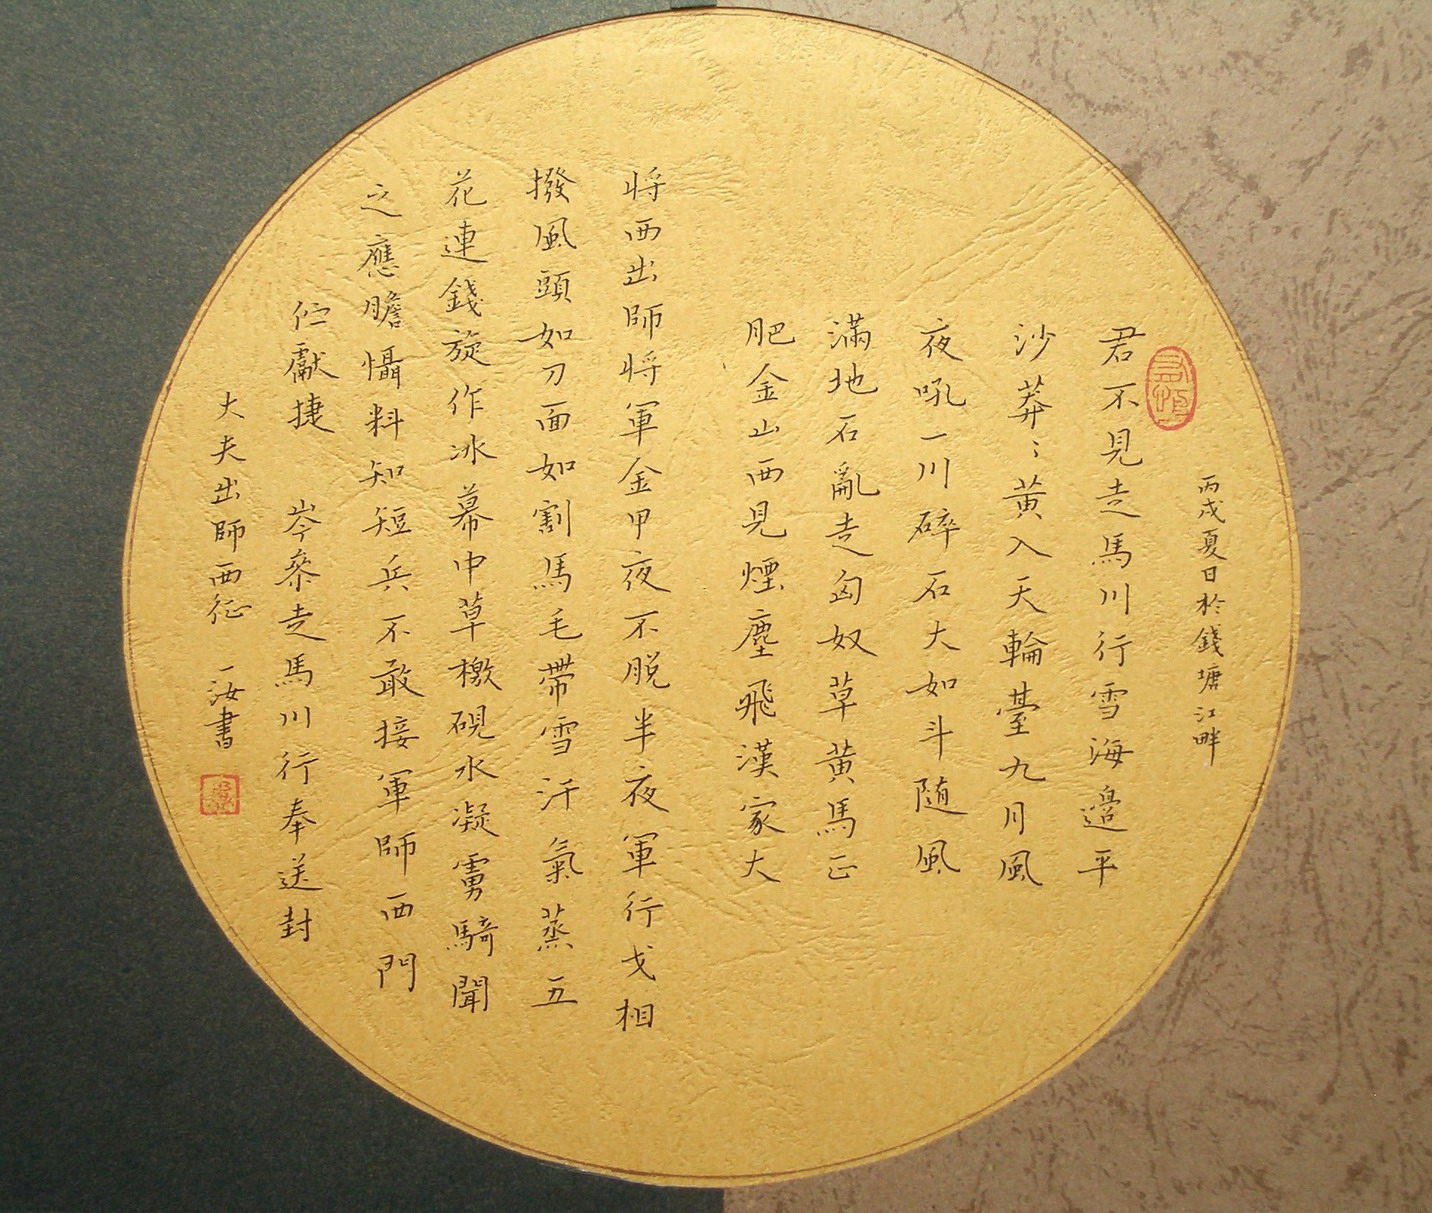 丙戌夏日於錢塘江畔
君不見走馬川行雪海邊平
沙莽〻黃入天輪臺九月風
夜吼一川碎石大如斗隨風
滿地石亂走匈奴草黃馬正
肥金山西見煙塵飛漢家大
将西出師将軍金甲夜不脱半夜軍行戈相
撥風頭如刀面如割馬毛帶雪汗氣蒸五
花連錢旋作冰幕中草檄硯水凝虜騎聞
之應膽懾料知短兵不敢接軍師西門
伫獻捷 岑參走馬川行奉送封
大夫出師西征 一汝書